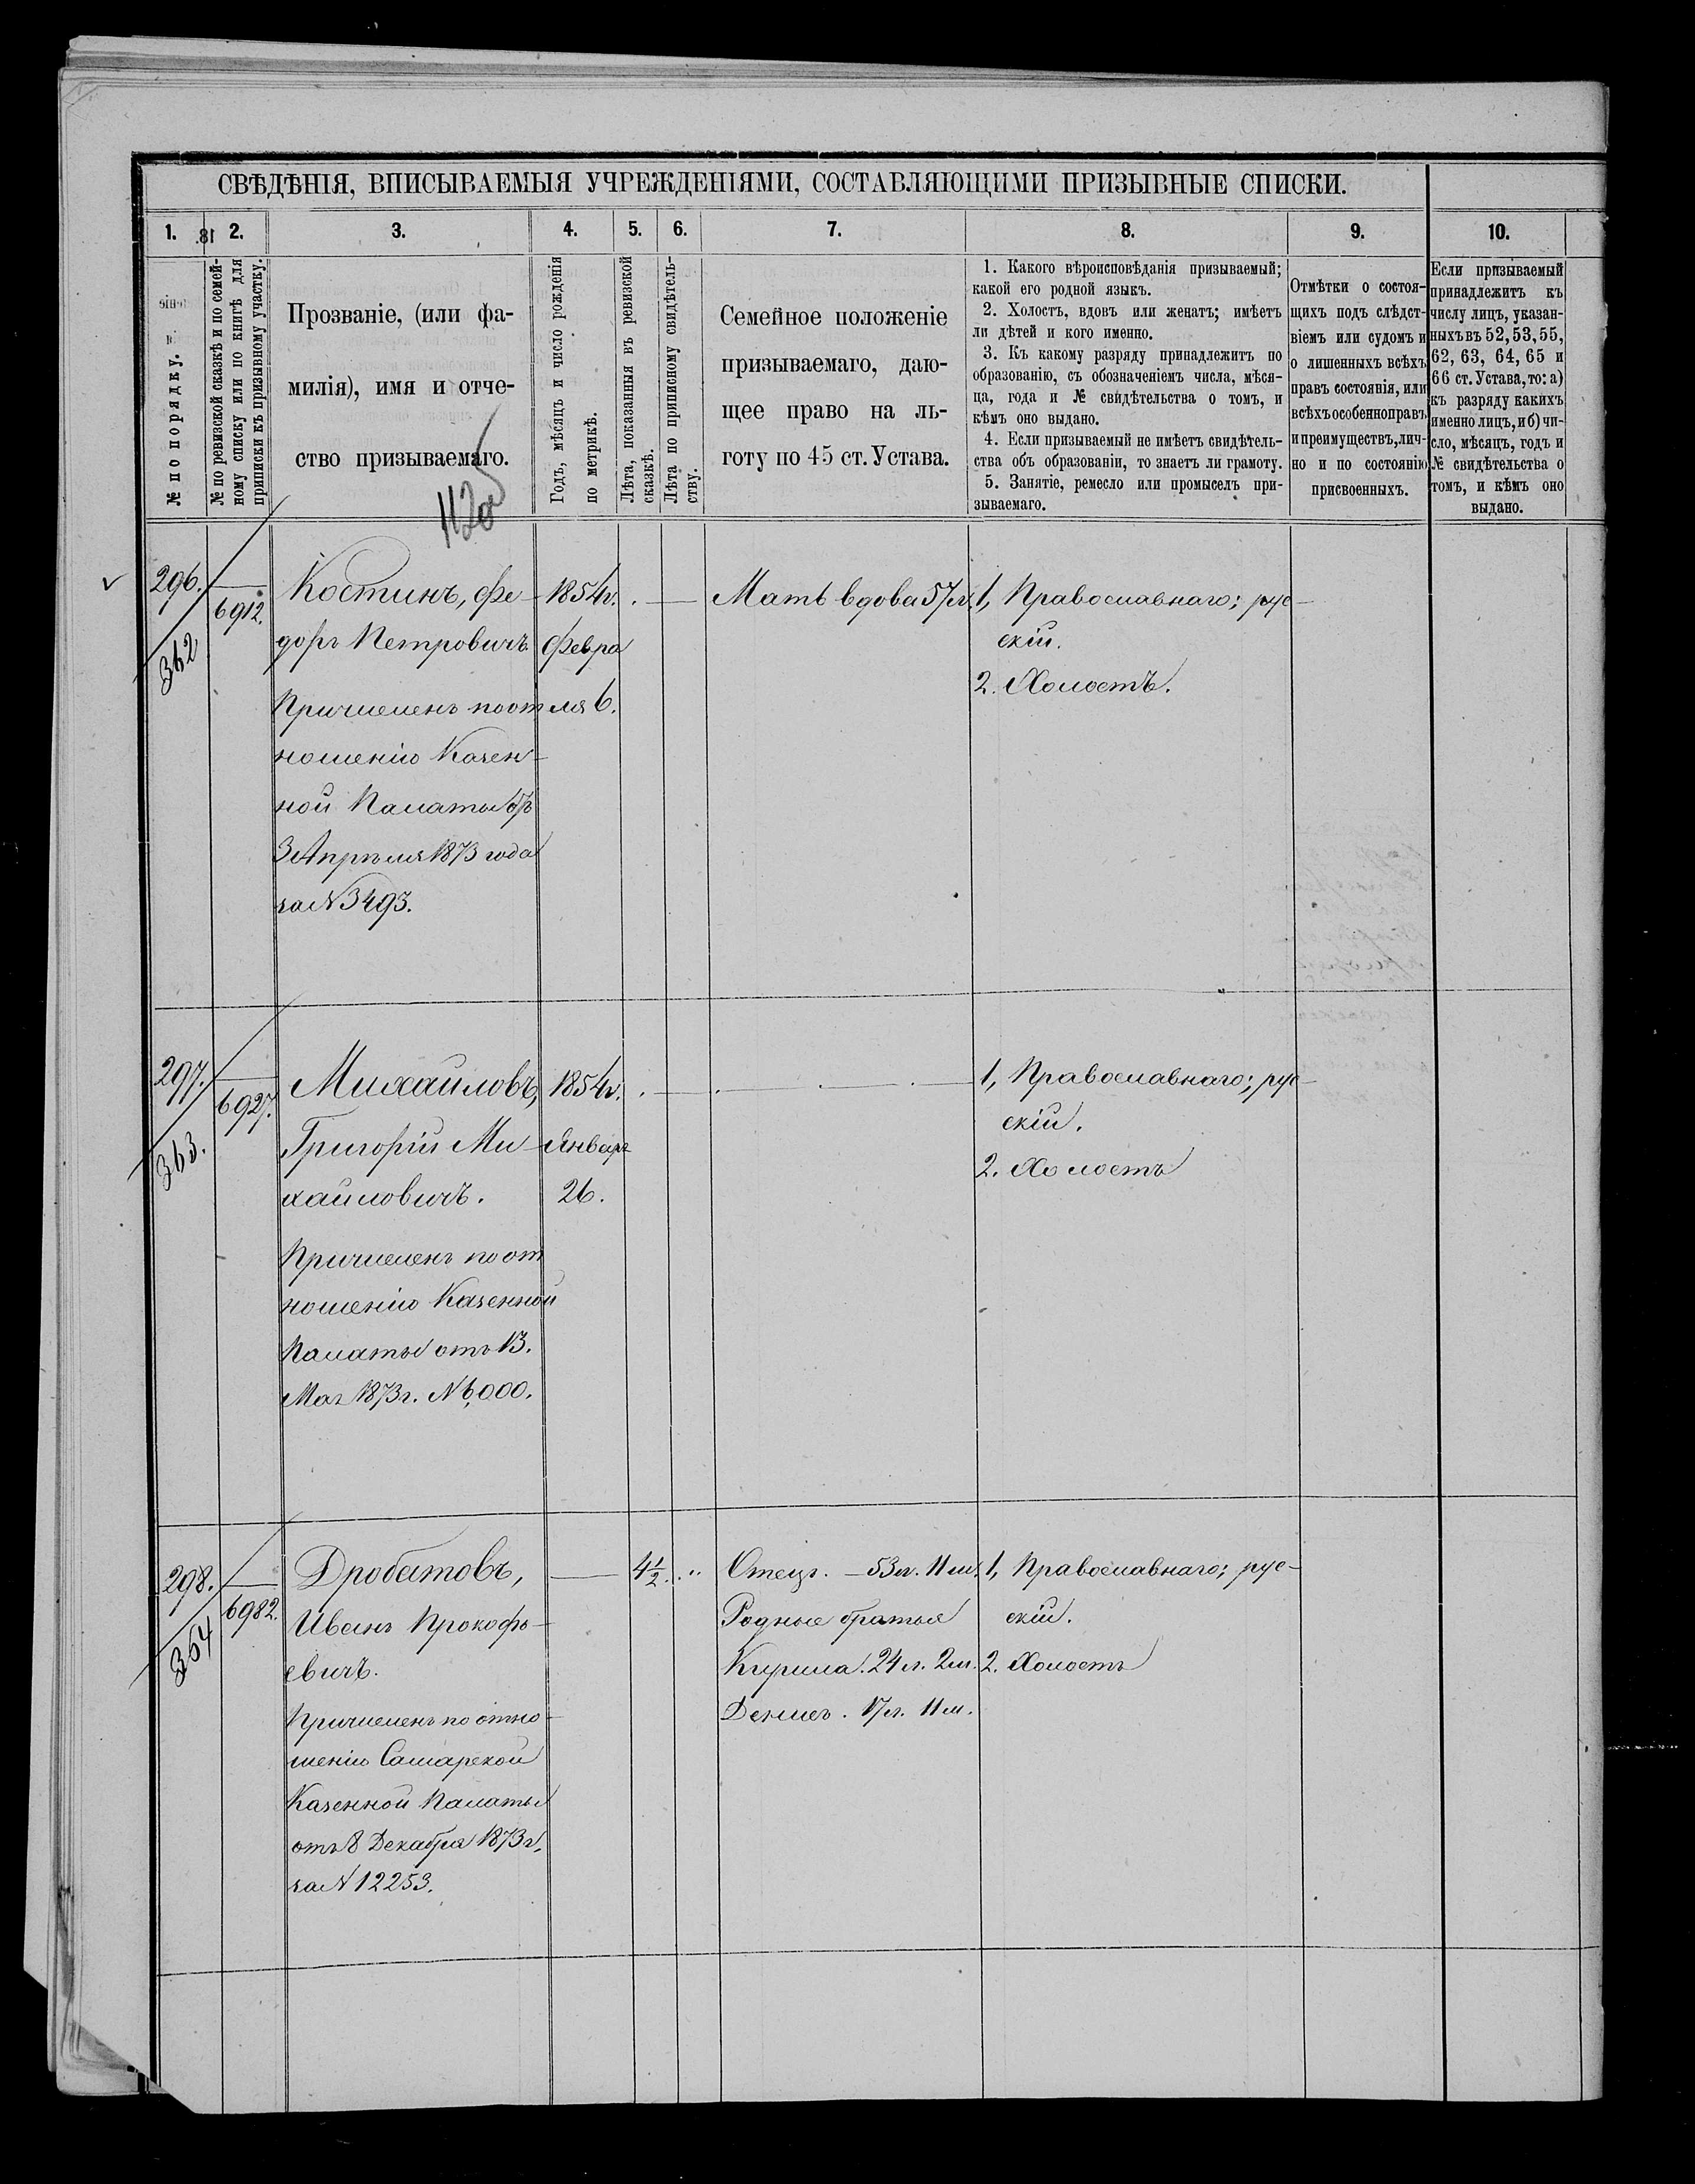 СВѢДѢНІЯ, ВПИСЫВАЕМЫЯ УЧРЕЖДЕНІЯМИ, СОСТАВЛЯЮЩИМИ ПРИЗЫВНЫЕ СПИСКИ.
1. 2. 3. 4. 5. 6. 7. 8. 9. 10.
№ по порядку.
№ по ревизской сказкѣ и по семей-
ному списку или по книгѣ для
приписки къ призывному участку.
Прозваніе, (или фа-
милія), имя и отче-
ство призываемаго.
Годъ, мѣсяцъ и число рожденія
по метрикѣ.
Лѣта, показанныя въ ревизской
сказкѣ.
Лѣта по приписному свидѣтель-
ству.
Семейное положеніе
призываемаго, даю-
щее право на ль-
готу по 45 ст. Устава.
1. Какого вѣроисповѣданія призываемый;
какой его родной языкъ.
2. Холостъ, вдовъ или женатъ; имѣетъ
ли дѣтей и кого именно.
3. Къ какому разряду принадлежитъ по
образованію, съ обозначеніемъ числа, мѣся-
ца, года и № свидѣтельства о томъ, и
кѣмъ оно выдано.
4. Если призываемый не имѣетъ свидѣтель-
ства объ образованіи, то знаетъ ли грамоту.
5. Занятіе, ремесло или промыселъ при-
зываемаго.
Отмѣтки о состоя-
щихъ подъ слѣдст-
віемъ или судомъ и
о лишенныхъ всѣхъ
правъ состоянія, или
всѣхъ особенно правъ
и преимуществъ, лич-
но и по состоянію
присвоенныхъ.
Если призываемый
принадлежитъ къ
числу лицъ, указан-
ныхъ въ 52, 53, 55,
62, 63, 64, 65 и
66 ст. Устава, то: а)
къ разряду какихъ
именно лицъ, и б) чи-
сло, мѣсяцъ, годъ и
№ свидѣтельства о
томъ, и кѣмъ оно
выдано.
296.
362
6912.
Костинъ, Фе-
доръ Петровичъ.
Причисленъ по от
ношенію Казен-
ной Палаты отъ
3 Апрѣля 1873 года
за N 3493.
1854 г.
Февра
ля 6.
Мать вдова 57 л.
1, Православнаго; рус-
скій.
2. Холостъ.
297.
363.
6927.
Михайловъ,
Григорій Ми-
хайловичъ.
Причисленъ по от
ношенію Казенной
Палаты отъ 13.
Мая 1873 г. N 6,000.
1854 г.
Января
26.
1, Православнаго; рус-
скій.
2. Холостъ
298.
364
6982.
Дробатовъ,
Иванъ Прокофь-
евичъ.
Причисленъ по отно-
шенію Самарской
Казенной Палаты
отъ 8 Декабря 1873 г.
за N 12253.
4 1/2.
Отецъ. — 53 л. 11 м.
Родные братья
Кирила. 24 л. 2 м.
Денисъ. 17 л. 11 м.
1, Православнаго; рус-
скій.
2. Холостъ